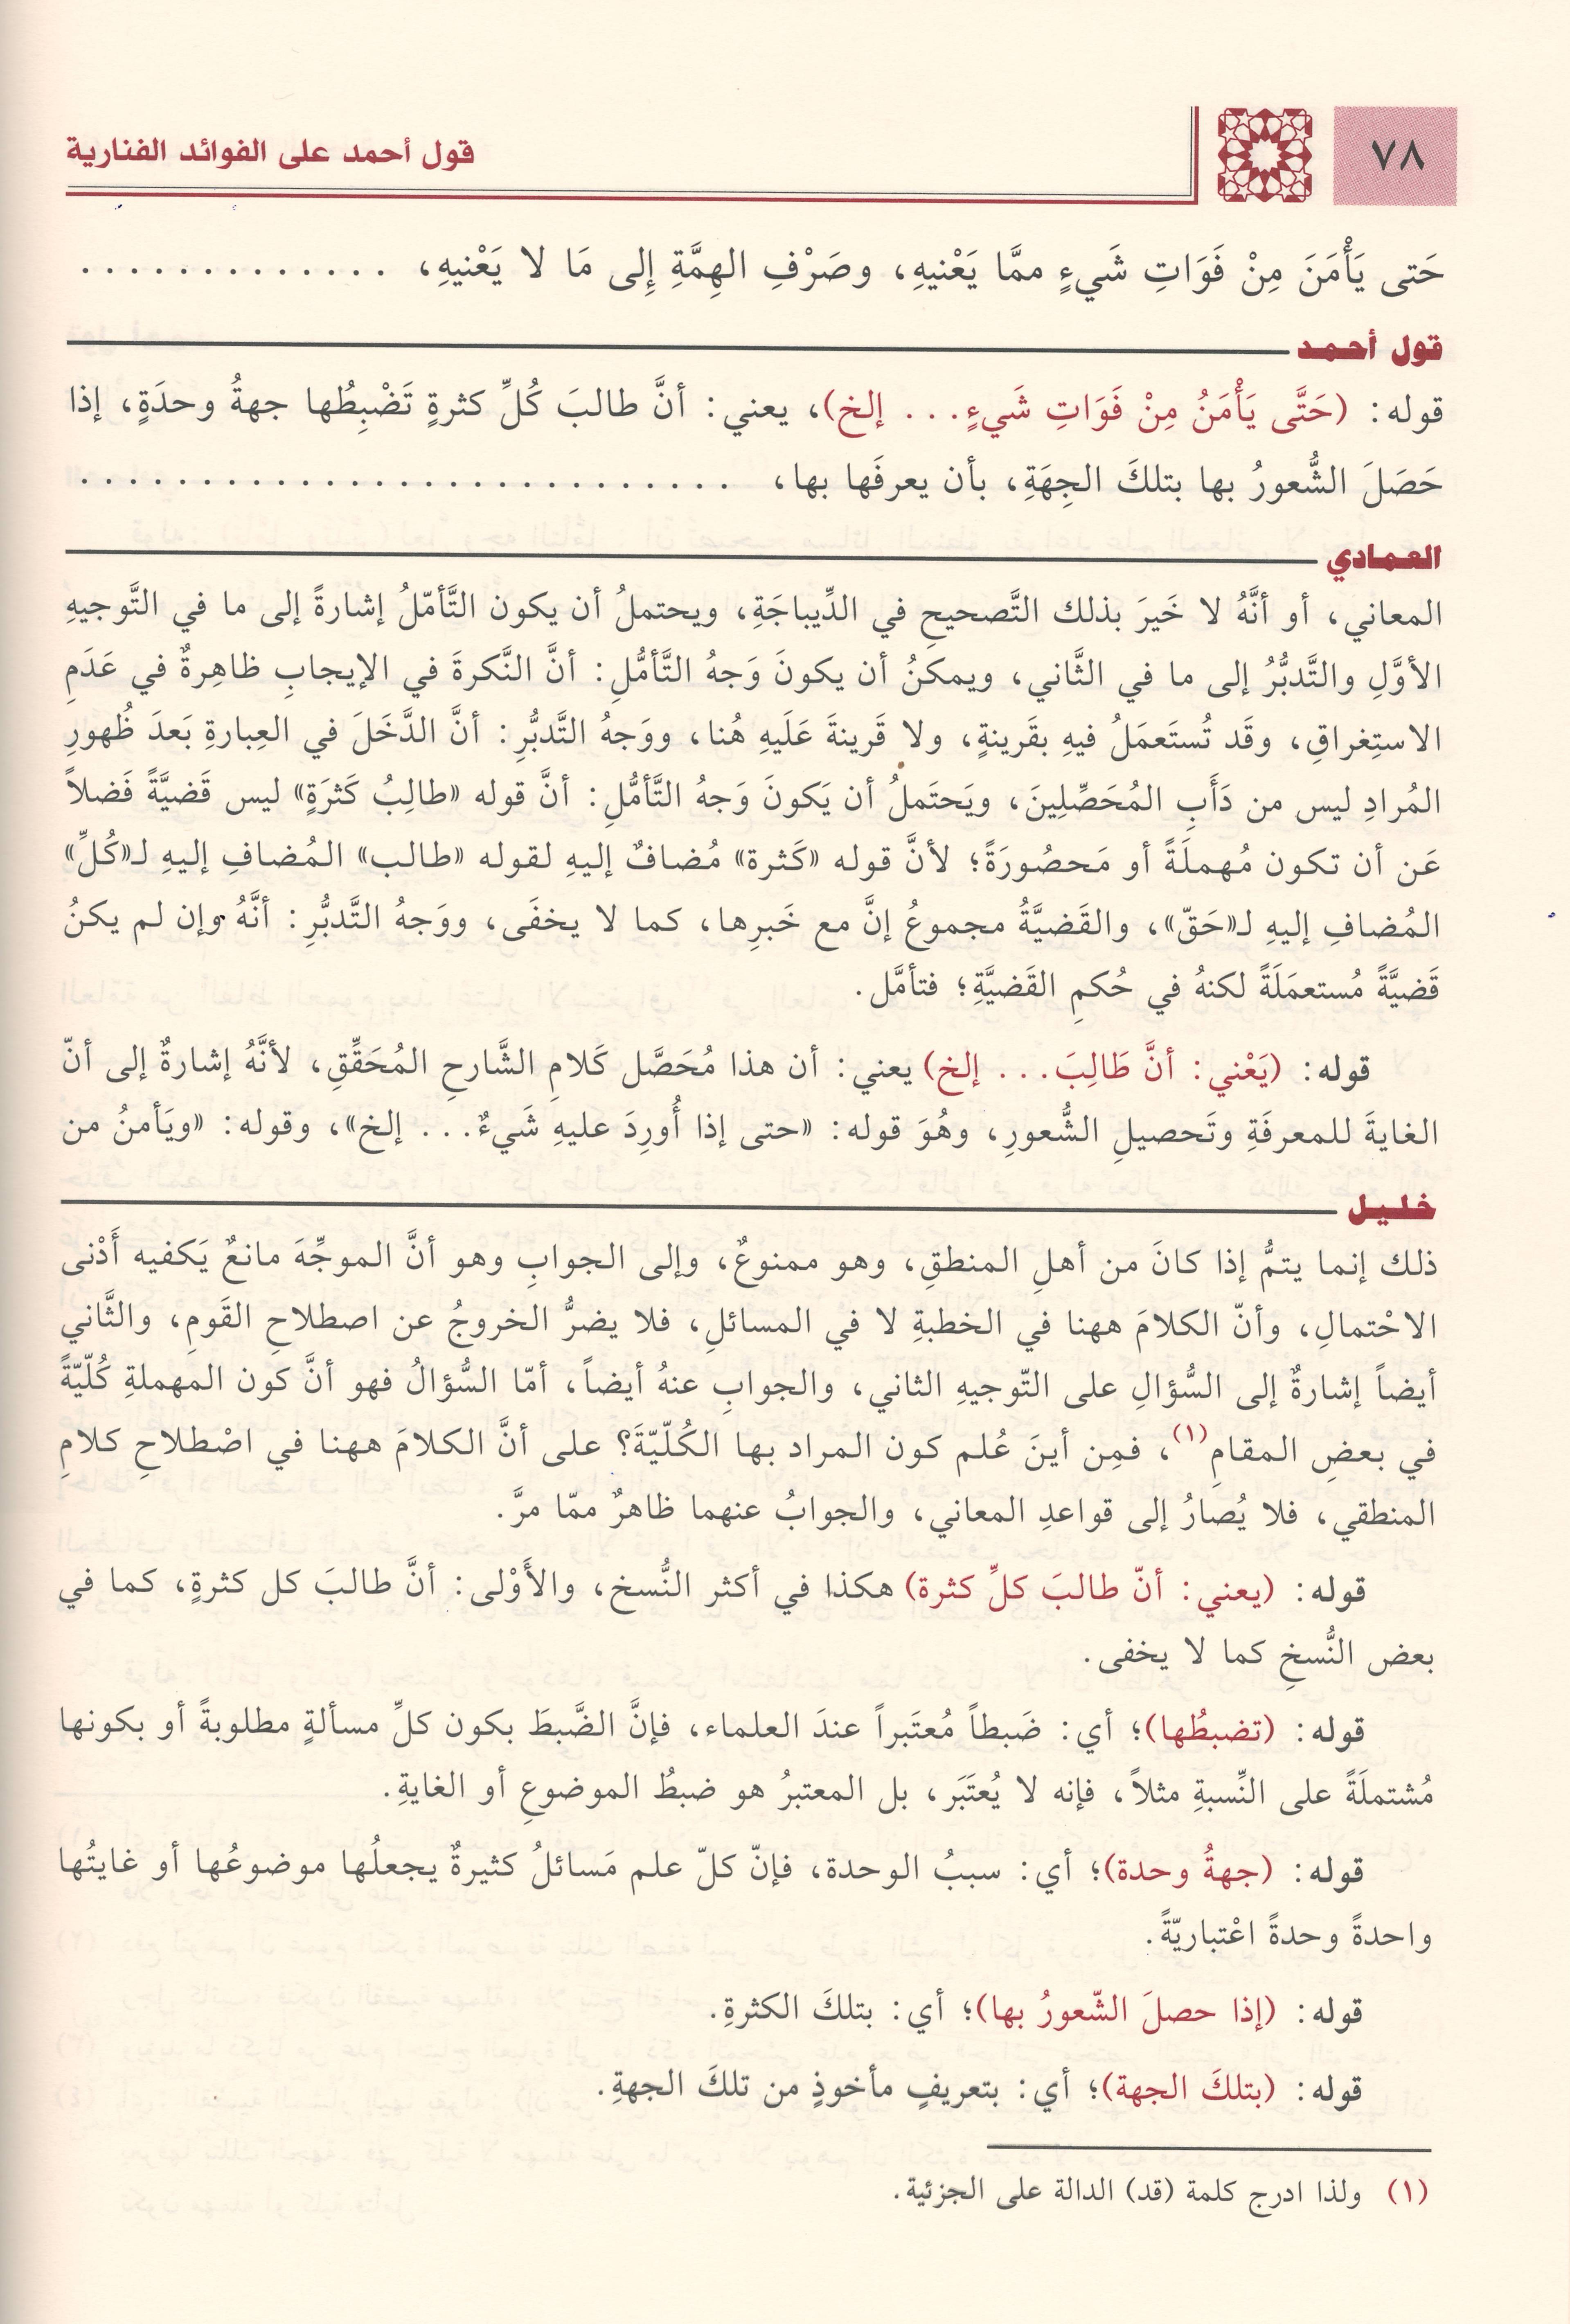 ٧٨
قول أحمد على الفوائد الفنارية
حَتى يَأْمَنَ مِنْ فَوَاتِ شَيءٍ ممَّا يَعْنيهِ، وصَرْفِ الهِمَّةِ إِلى مَا لا يَعْنيهِ، . . . . . . . . . . . . .
قول أحمد
قوله: (حَتَّى يَأْمَنُ مِنْ فَوَاتِ شَيءٍ. . . إلخ)، يعني: أنَّ طالبَ كُلِّ كثرةٍ تَضْبِطُها جهةُ وحدَةٍ، إذا
حَصَلَ الشُّعورُ بها بتلكَ الجِهَةِ، بأن يعرفَها بها، . . . . . . . . . . . . . . . . . . . . . . . . . . . .
العمادي
المعاني، أو أنَّهُ لا خَيرَ بذلك التَّصحيحِ في الدِّيباجَةِ، ويحتملُ أن يكون التَّأمّلُ إشارةً إلى ما في التَّوجيهِ
الأوَّلِ والتَّدبُّرُ إلى ما في الثَّاني، ويمكنُ أن يكونَ وَجهُ التَّأمُّلِ: أنَّ النَّكرةَ في الإيجابِ ظاهِرةٌ في عَدَمِ
الاستِغراقِ، وقَد تُستَعمَلُ فيهِ بقَرينةٍ، ولا قَرينةَ عَلَيهِ هُنا، ووَجهُ التَّدبُّرِ: أنَّ الدَّخَلَ في العِبارةِ بَعدَ ظُهورِ
المُرادِ ليس من دَأَبِ المُحَصِّلِينَ، ويَحتَملُ أن يَكونَ وَجهُ التَّأمُّلِ: أنَّ قوله «طالِبُ كَثرَةٍ» ليس قَضيَّةً فَضلاً
عَن أن تكون مُهملَةً أو مَحصُورَةً؛ لأنَّ قوله «كَثرة» مُضافٌ إليهِ لقوله «طالب» المُضافِ إليهِ لـ«كُلِّ»
المُضافِ إليهِ لـ«حَقّ»، والقَضيَّةُ مجموعُ إنَّ مع خَبرِها، كما لا يخفَى، ووَجهُ التَّدبُّرِ: أنَّهُ وإن لم يكنُ
قَضيَّةً مُستعمَلَةً لكنهُ في حُكمِ القَضيَّةِ؛ فتأمَّل.
قوله: (يَعْني: أنَّ طَالِبَ. . . إلخ) يعني: أن هذا مُحَصَّل كَلامِ الشَّارحِ المُحَقِّقِ، لأنَّهُ إشارةٌ إلى أنّ
الغايةَ للمعرفَةِ وتَحصيلِ الشُّعورِ، وهُوَ قوله: «حتى إذا أُورِدَ عليهِ شَيءٌ. . . إلخ»، وقوله: «ويَأمنُ من
خليل
ذلك إنما يتمُّ إذا كانَ من أهلِ المنطقِ، وهو ممنوعٌ، وإلى الجوابِ وهو أنَّ الموجِّهَ مانعٌ يَكفيه أَدْنى
الاحْتمالِ، وأنّ الكلامَ ههنا في الخطبةِ لا في المسائلِ، فلا يضرُّ الخروجُ عن اصطلاحِ القَومِ، والثَّاني
أيضاً إشارةٌ إلى السُّؤالِ على التّوجيهِ الثاني، والجوابِ عنهُ أيضاً، أمّا السُّؤالُ فهو أنَّ كون المهملةِ كُلّيّةً
في بعضِ المقامِ(١)، فمِن أينَ عُلم كون المراد بها الكُلّيّةَ؟ على أنَّ الكلامَ ههنا في اصْطلاحِ كلامِ
المنطقي، فلا يُصارُ إلى قواعدِ المعاني، والجوابُ عنهما ظاهرٌ ممّا مرَّ.
قوله: (يعني: أنّ طالبَ كلِّ كثرة) هكذا في أكثر النُّسخ، والأَوْلى: أنَّ طالبَ كل كثرةٍ، كما في
بعض النُّسخِ كما لا يخفى.
قوله: (تضبطُها)؛ أي: ضَبطاً مُعتَبراً عندَ العلماء، فإنَّ الضَّبطَ بكون كلِّ مسألةٍ مطلوبةً أو بكونها
مُشتملَةً على النِّسبةِ مثلاً، فإنه لا يُعتَبَر، بل المعتبرُ هو ضبطُ الموضوعِ أو الغايةِ.
قوله: (جهةُ وحدة)؛ أي: سببُ الوحدة، فإنّ كلّ علم مَسائلُ كثيرةٌ يجعلُها موضوعُها أو غايتُها
واحدةً وحدةً اعْتباريّةً.
قوله: (إذا حصلَ الشّعورُ بها)؛ أي: بتلكَ الكثرةِ.
قوله: (بتلكَ الجهة)؛ أي: بتعريفٍ مأخوذٍ من تلكَ الجهةِ.
(١) ولذا ادرج كلمة (قد) الدالة على الجزئية.